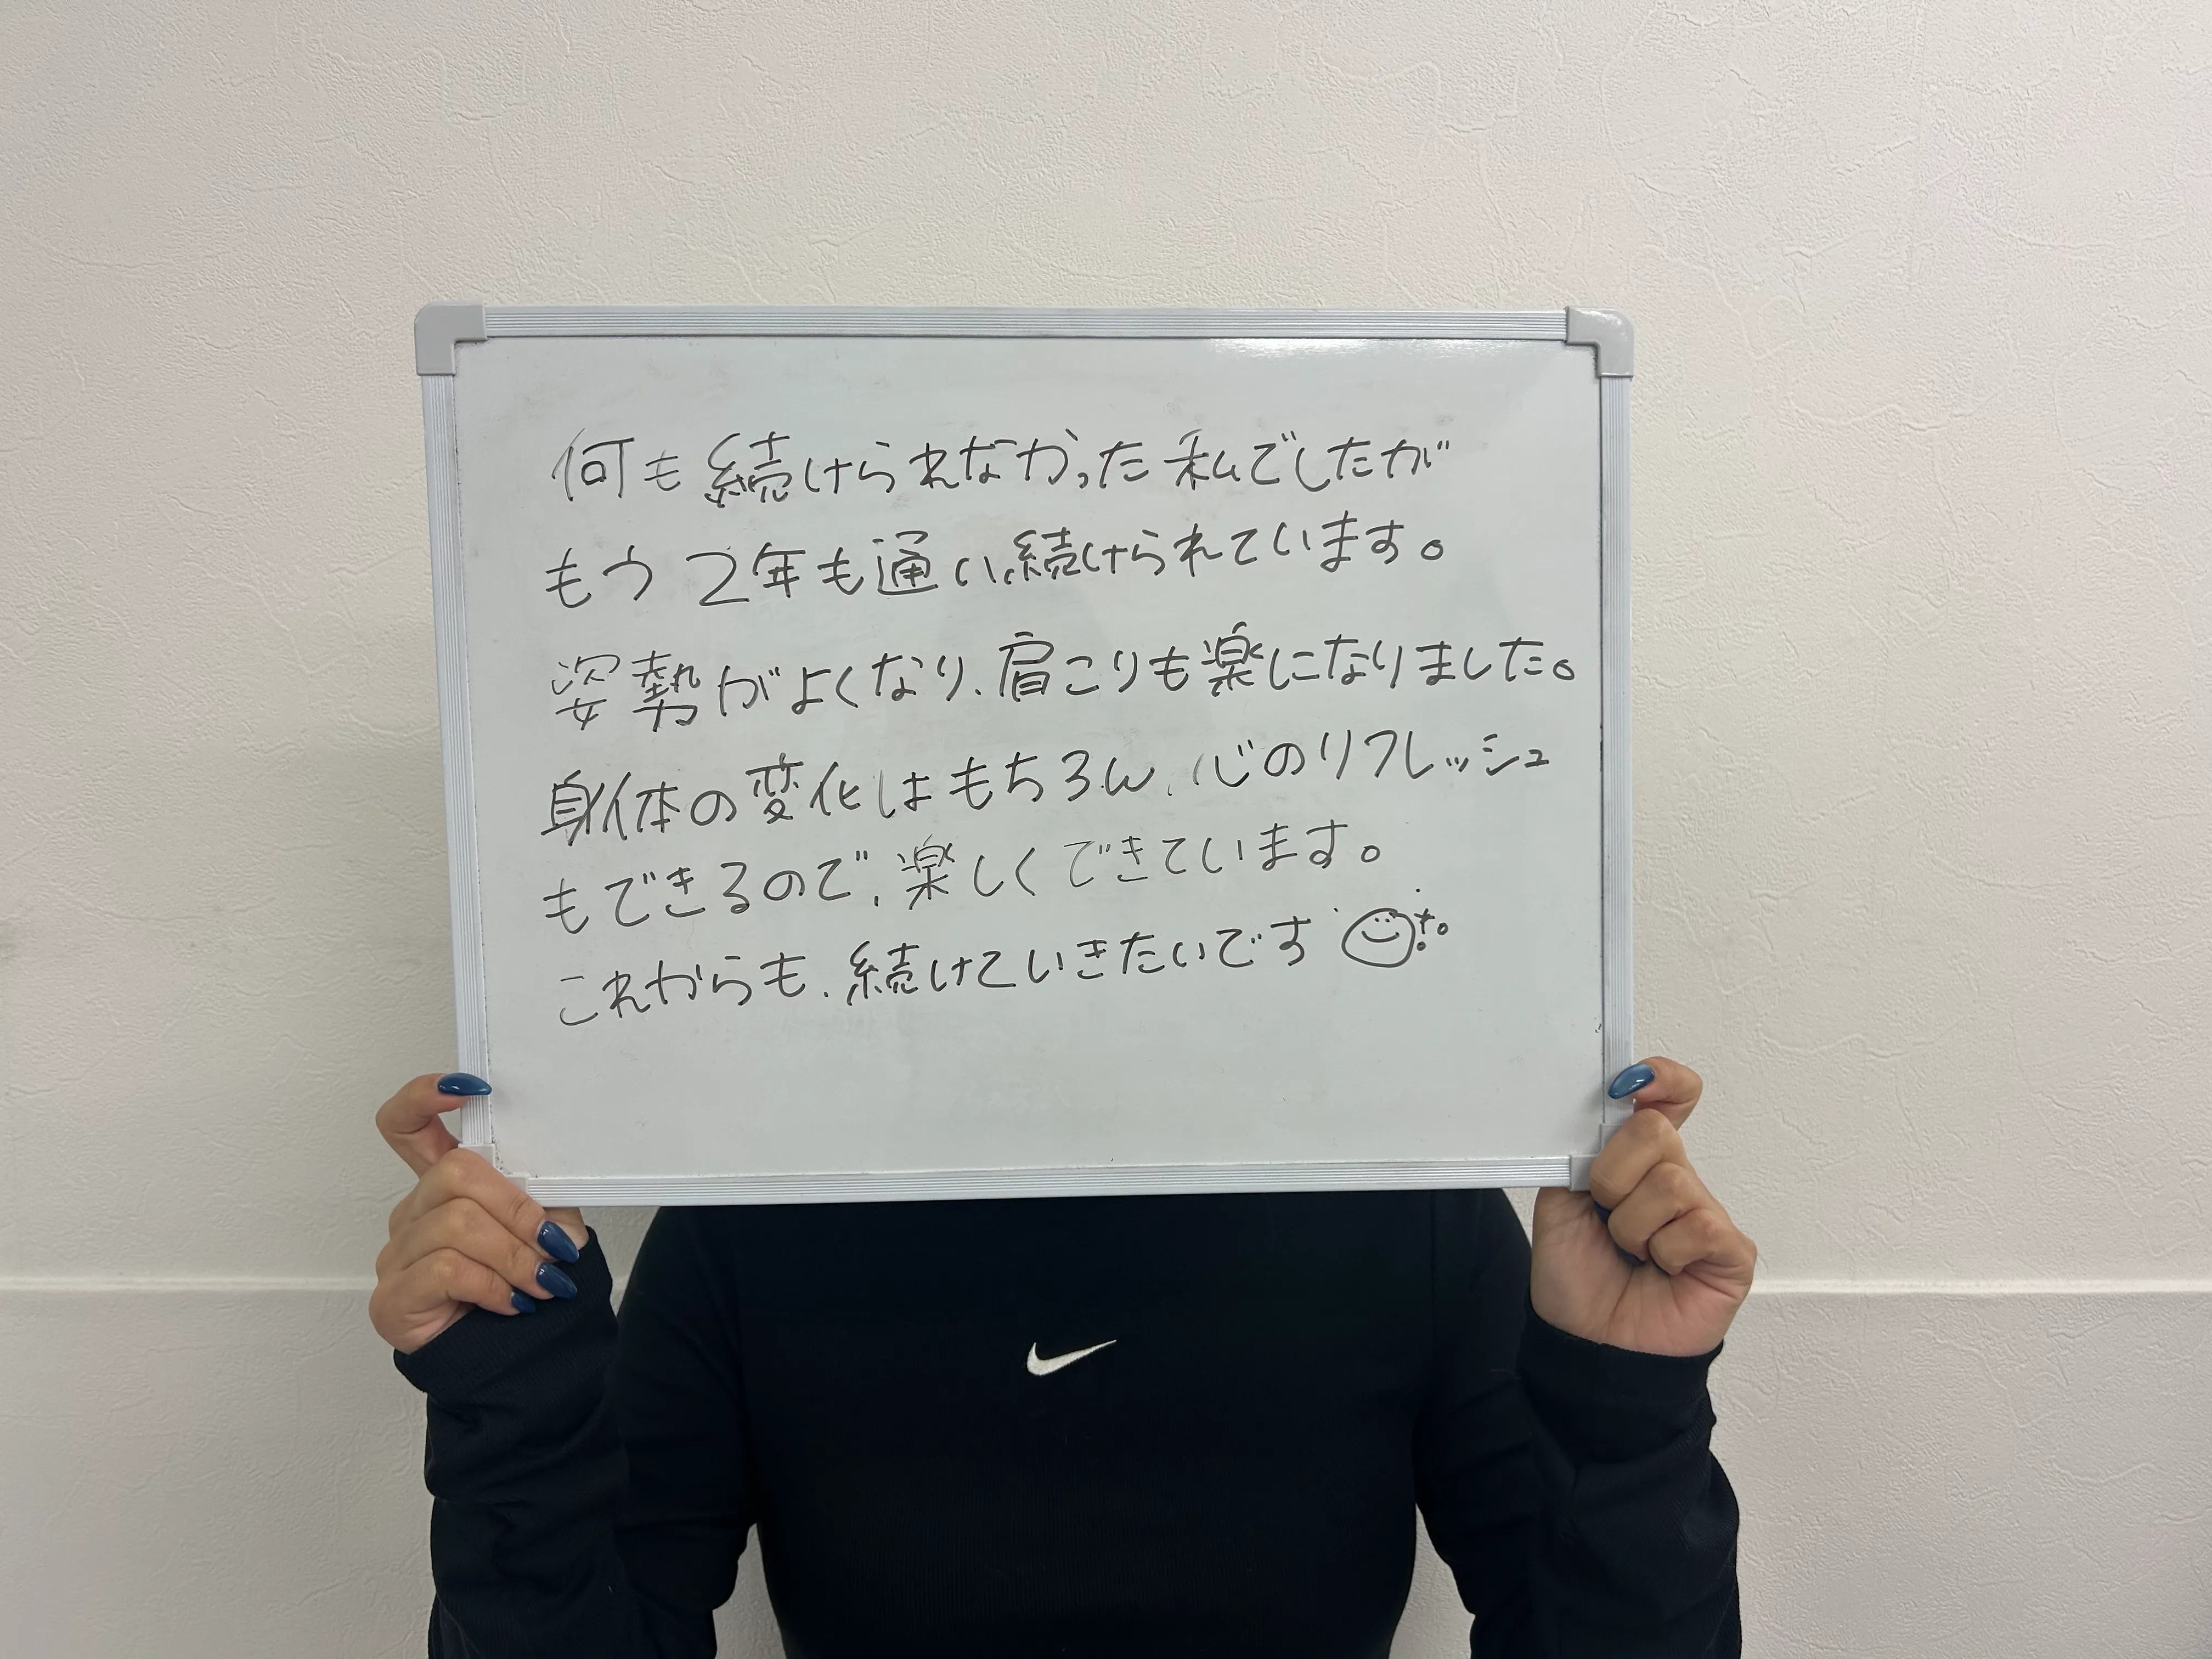 何も続けられなかった私でしたが
もう2年も通い続けられています。
姿勢がよくなり、肩こりも楽になりました。
身体の変化はもちろん、心のリフレッシュ
もできるので、楽しくできています。
これからも、続けていきたいです